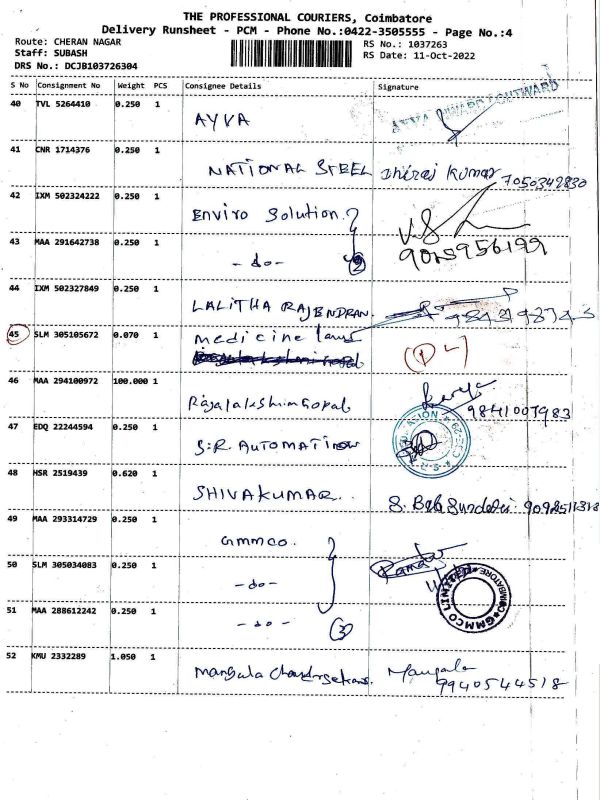 THE PROFESSIONAL COURIERS, Coimbatore
Delivery Runsheet - PCM - Phone No.:0422-3505555 - Page No.:4
Route: CHERAN NAGAR
RS No.: 1037263
Staff: SUBASH
RS Date: 11-Oct-2022
DRS No.: DCJB103726304
S No Consignment No Weight PCS Consignee Details Signature
40 TVL 5264410 0.250 1
AYVA
AYVA INWARD / OUTWARD
41 CNR 1714376 0.250 1
NATIONAL STEEL Dhiraj Kumar 7050342830
42 IXM 502324222 0.250 1
Enviro Solution
43 MAA 291642738 0.250 1
- do - 2
44 IXM 502327849 0.250 1
LALITHA RAJENDRAN
45 SLM 305105672 0.070 1
medicine
46 MAA 294100972 100.000 1
Rajalakshmi Gopal
9841007983
47 EDQ 22244594 0.250 1
S.R. AUTOMATION
48 HSR 2519439 0.620 1
SHIVAKUMAR
49 MAA 293314729 0.250 1
GMMCO
50 SLM 305034083 0.250 1
- do -
GMMCO
COIMBATORE
51 MAA 288612242 0.250 1
- do - 3
52 KMU 2332289 1.050 1
Mangala Chandrsekaran. Mangala
9940544518